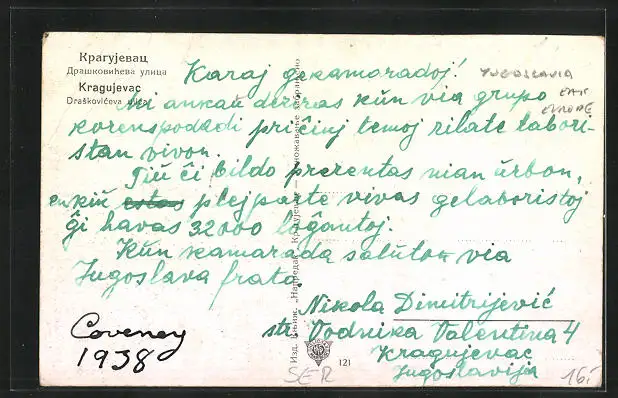 Крагујевац
Драшковићева улица
Kragujevac
Draškovićeva ulica
YUGOSLAVIA
Karaj gekamaradoj!
Mi ankaŭ deziras kun via grupo
korenspodadi pri ĉiuj temoj rilate labori-
stan vivon.
Tiu ĉi bildo prezentas nian urbon,
en kiu estas plejparte vivas gelaboristoj
ĝi havas 32000 loĝantoj.
Kun kamarada saluton via
Jugoslava frato.
Nikola Dimitrijević
str. Vodnika Valentina 4
Kragujevac
Jugoslavija
Coveney
1938
Изд. Књиж. „Напредак" Крагујевац — Умножавање забрањено
121
SER
16.